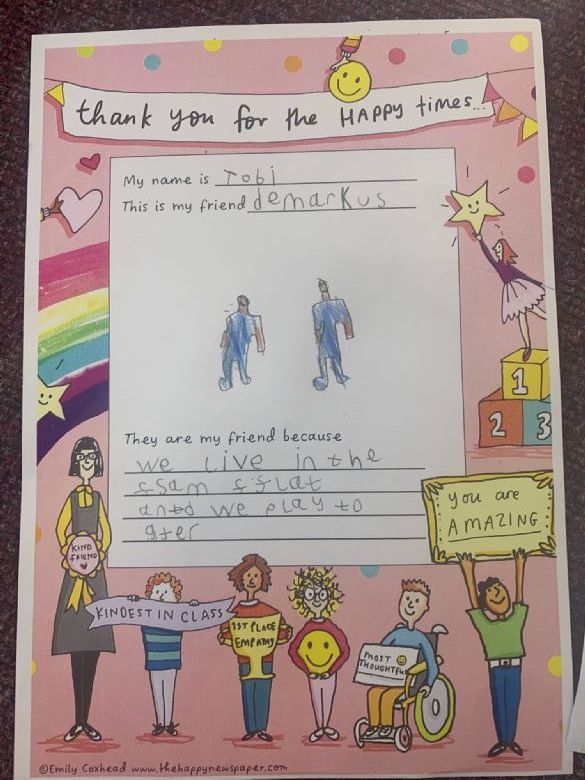 thank you for the HAPPY times...
My name is Tobi
This is my friend demarkus
1
2 3
They are my friend because
we live in the
ssam fflat
anted we play to
gter
you are
AMAZING
KIND
FRIEND
KINDEST IN CLASS
1ST PLACE
EMPATHY
MOST
THOUGHTFUL
©Emily Coxhead www.thehappynewspaper.com